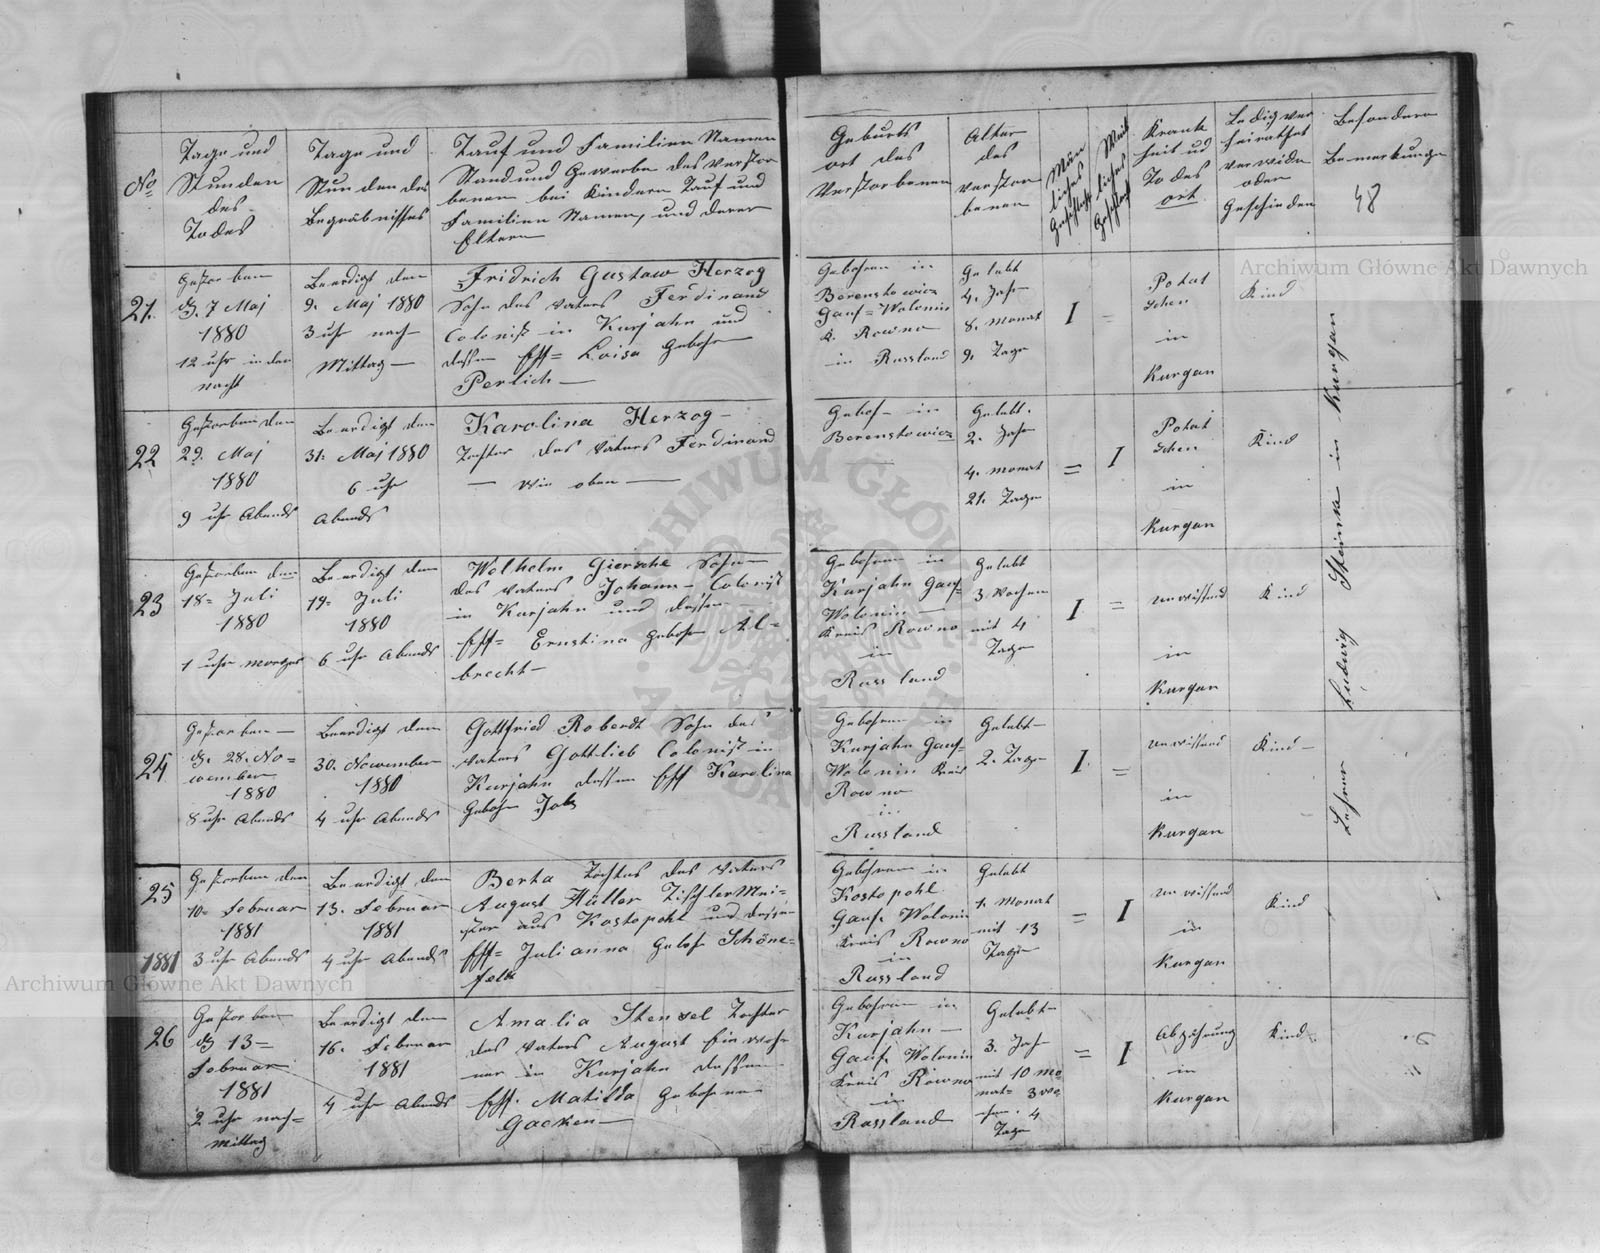 No
Tage und
Stunden
des
Todes
Tage und
Stunden des
Begräbnisses
Tauf und Familien Namen
Stand und Gewerbe des Verstor
benen bei Kindern Tauf und
Familien Namen, und deren
Eltern
Geburts
ort des
Verstorbenen
Alter
des
verstor
benen
Män
liches
Geschlecht
Weib
liches
Geschlecht
Krank
heit ud
Todes
ort
Ledig ver
heirathet
verwitw
oder
Geschieden
Besondere
Bemerkungen
48
21.
Gestorben
d. 7 Maj
1880
12 uhr in der
nacht
Beerdigt den
9. Maj 1880
3 uhr nach
Mittag
Fridrich Gustaw Herzog
Sohn des Vaters Ferdinand
Colonist in Kurjahn und
dessen Ehf= Loisa Gebohr
Perlich
Gebohren in
Berenstowicz
Gouf= Wolonin
K. Rowno
in Russland
Gelebt
4. Jahr
8. Monat
9. Tage
I =
Potat
schen
in
Kurgan
Kind
22
Gestorben den
29. Maj
1880
9 uhr Abends
Beerdigt den
31. Maj 1880
6 uhr
Abends
Karolina Herzog
Tochter des Vaters Ferdinand
— wie oben —
Geboh- in
Berenstowicz
Gelebt.
2. Jahr
4. monat
21. Tage
= I
Potat
schen
in
Kurgan
Kind
23
Gestorben den
18= Juli
1880
1 uhr morgens
Beerdigt den
19= Juli
1880
6 uhr Abends
Welhelm Giersche Sohn
des Vaters Johann Colonist
in Kurjahn und dessen
Ehf= Ernstina gebohr Al=
brecht
Gebohren in
Kurjahn Gouf=
Wolonin
Kreis Rowno
in
Russland
Gelebt
3 Wochen
mit 4
Tage
I =
unwissend
in
Kurgan
Kind
24
Gestorben
d. 28. No=
wember
1880
8 uhr Abends
Beerdigt den
30. Nowember
1880
4 uhr Abends
Gottfried Roberdt Sohn des
Vaters Gottlieb Colonist in
Kurjahn dessen Ehf Karolina
Gebohr
Gebohren in
Kurjahn Gouf=
Wolonin Kreis
Rowno
in
Russland
Gelebt
2. Tage
I =
unwissend
in
Kurgan
Kind
25
1881
Gestorben den
10= Februar
1881
3 uhr Abends
Beerdigt den
13. Februar
1881
4 uhr Abends
Berta Tochter des Vaters
August Hüller Tischler Mei=
ster aus Kostopohl und dessen
Ehf= Julianna Gebohr Schöne=
felt
Gebohren in
Kostopohl
Gouf. Wolonin
Kreis Rowno
in
Russland
Gelebt
1. Monat
mit 13
Tage
= I
unwissend
in
Kurgan
Kind
26
Gestorben
d 13=
Februar
1881
2 uhr nach=
mittag
Beerdigt den
16. Februar
1881
4 uhr Abends
Amalia Stensel Tochter
des Vaters August Einwoh
ner in Kurjahn dessen
Ehf. Matilda Gebohren
Gacken
Gebohren in
Kurjahn
Gouf. Wolonin
Kreis Rowno
in
Russland
Gelebt
3. Jahr
mit 10 mo
nat= 3 Wo
chen. 4
Tage
= I
Abzehrung
in
Kurgan
Kind
Lehrer Ludwig Steinke in Kurgan
Archiwum Główne Akt Dawnych
Archiwum Główne Akt Dawnych